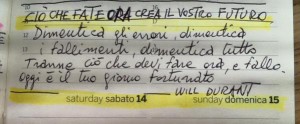 CIÒ CHE FATE ORA CREA IL VOSTRO FUTURO
Dimentica gli errori, dimentica
i fallimenti, dimentica tutto
Tranne ciò che devi fare ora, e fallo.
Oggi è il tuo giorno fortunato
WILL DURANT
saturday sabato 14
sunday domenica 15